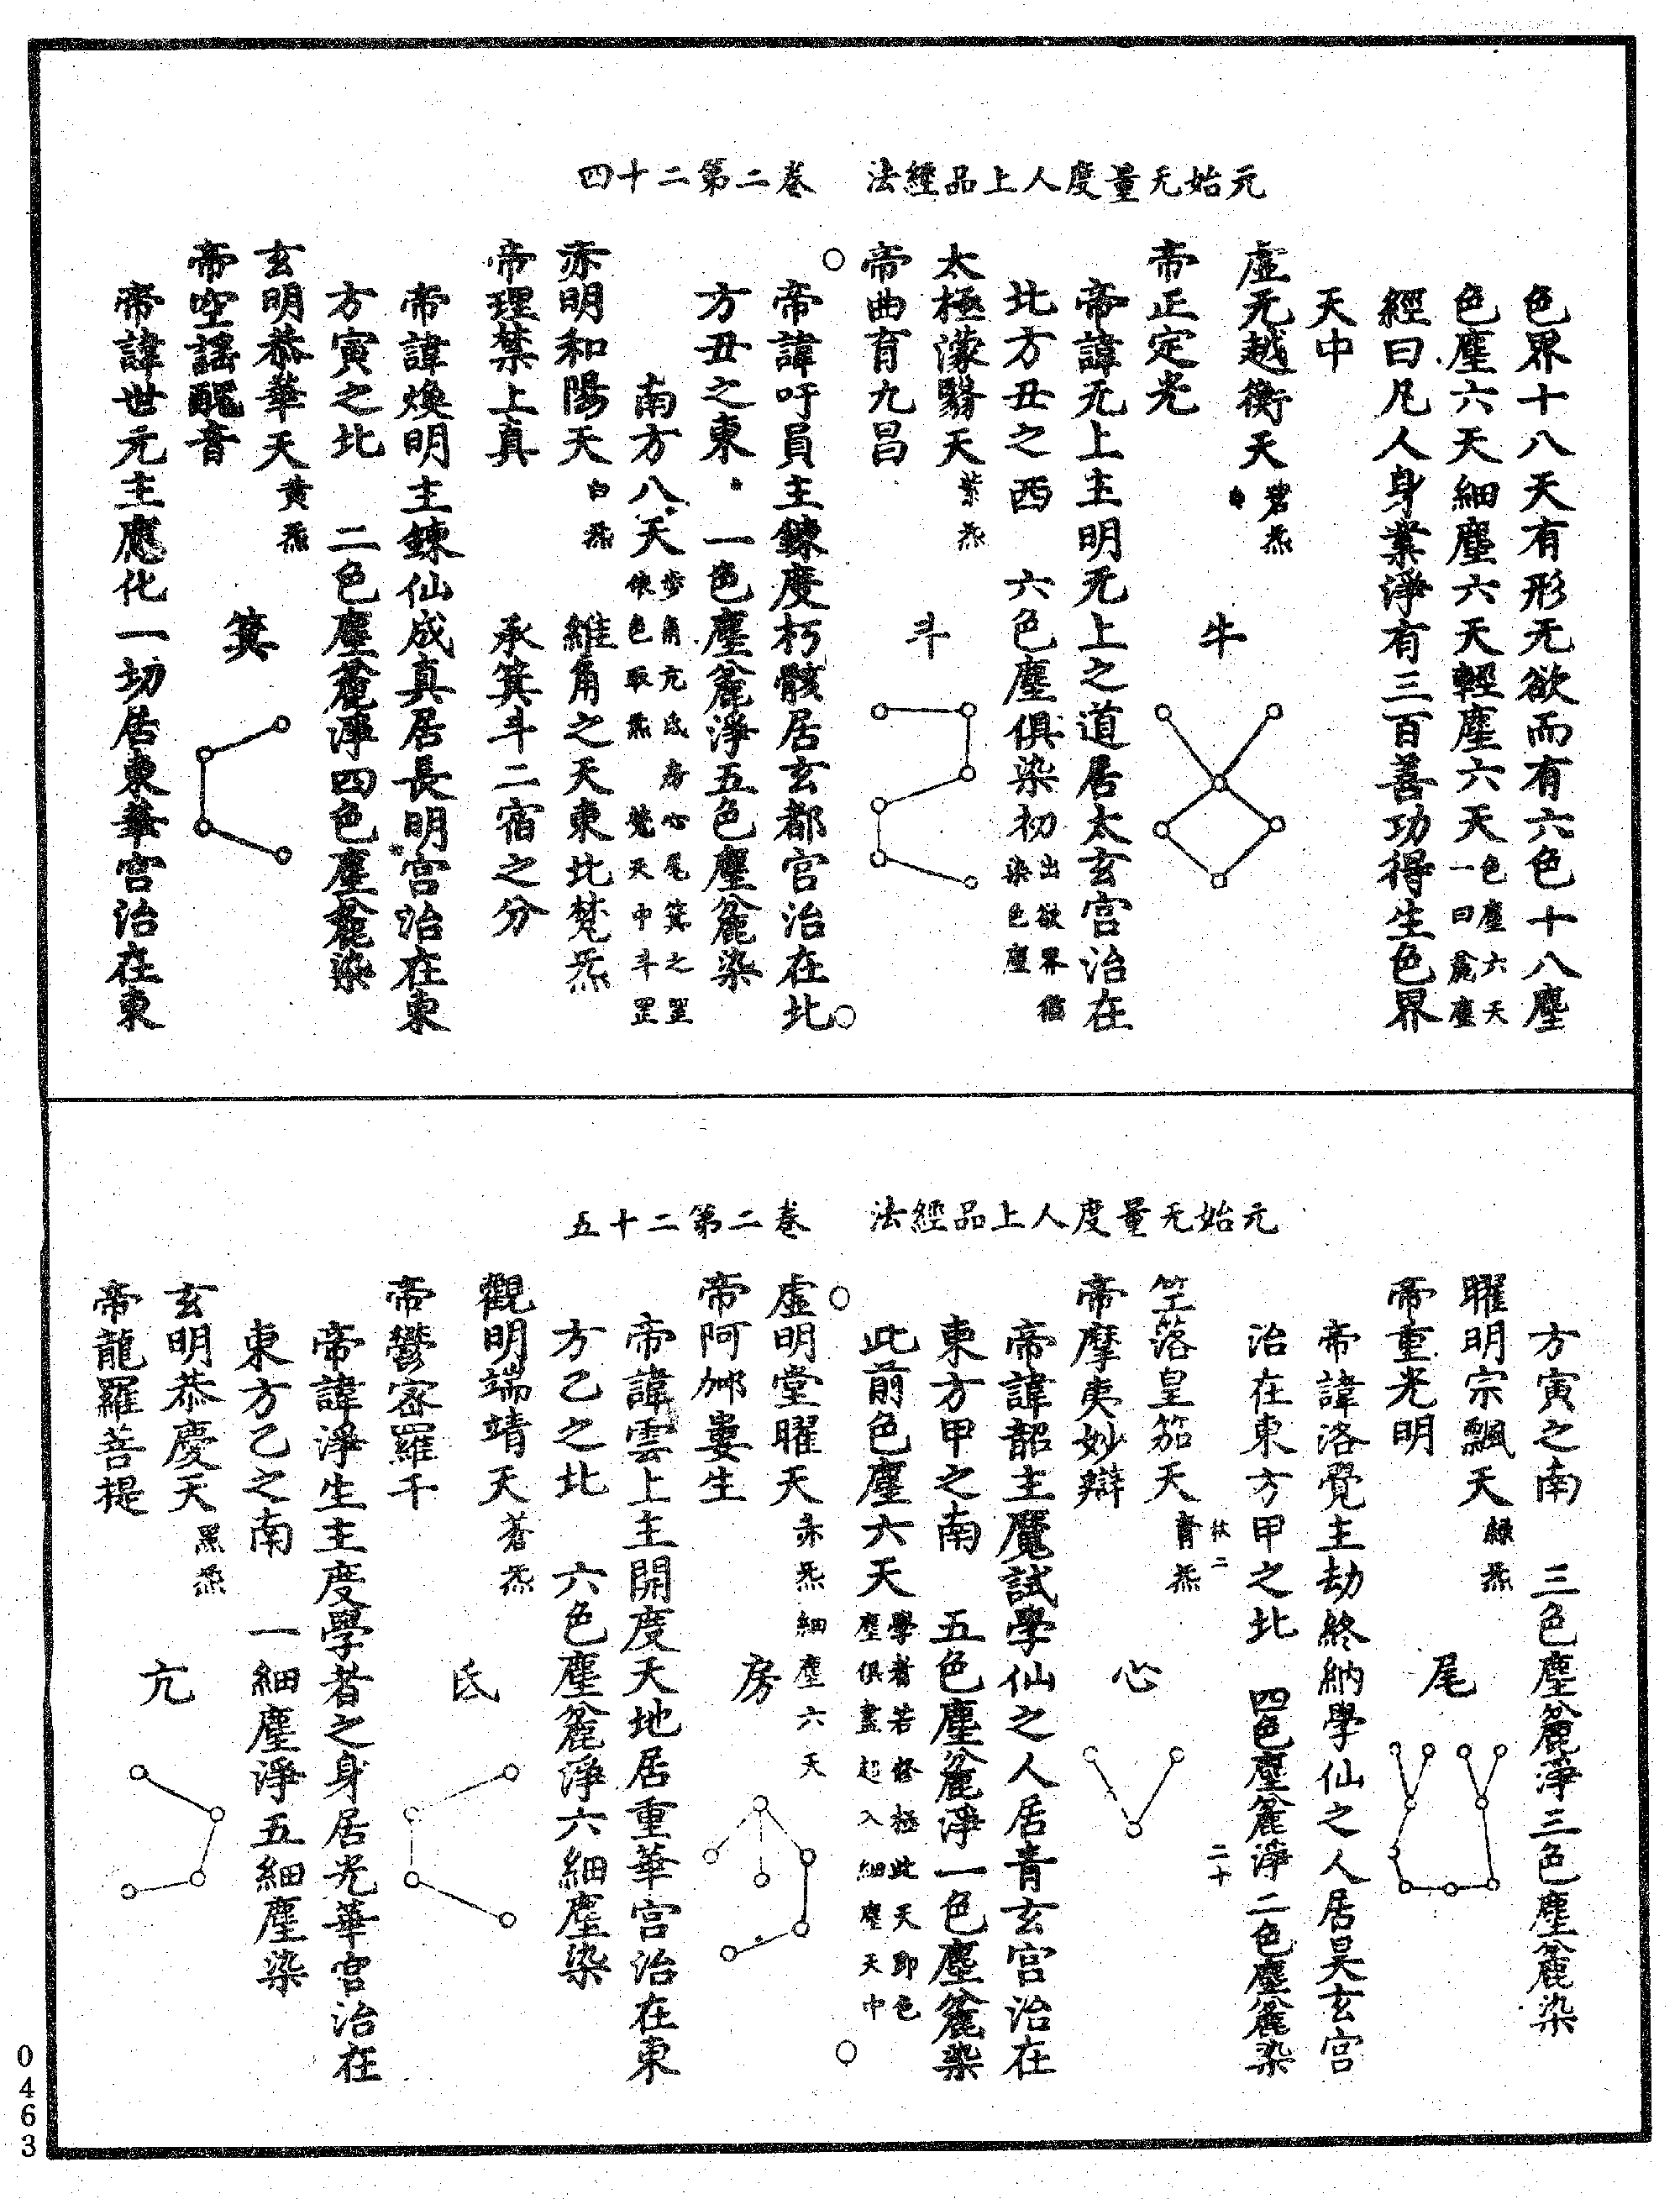 元始无量度人上品經法 卷二第二十四
色界十八天有形无欲而有六色十八塵
色塵六天細塵六天輕塵六天色塵六天一曰麄塵
經曰凡人身業淨有三百善功得生色界
天中
虛无越衡天碧炁 牛
帝正定光
帝諱无上主明无上之道居太玄宮治在
北方丑之西 六色塵俱染初出欲界猶染色塵
太極濛翳天紫炁 斗
帝曲育九昌
帝諱吁員主鍊度朽骸居玄都宮治在北
方丑之東 一色塵麄淨五色塵麄染
南方八天步角亢氐房心尾箕之罡依色取炁 梵天中斗罡
赤明和陽天白炁 維角之天東北梵炁
帝理禁上真 承箕斗二宿之分
帝諱煥明主鍊仙成真居長明宮治在東
方寅之北 二色塵麄淨四色塵麄染
玄明恭華天黄炁 箕
帝空謠醜音
帝諱世元主應化一切居東華宮治在東
元始无量度人上品經法 卷二第二十五
方寅之南 三色塵麄淨三色塵麄染
曜明宗飄天綠炁 尾
帝重光明
帝諱洛覺主劫終納學仙之人居昊玄宮
治在東方甲之北 四色塵麄淨二色塵麄染
伏二 二十
竺落皇笳天青炁 心
帝摩夷妙辯
帝諱韶主魔試學仙之人居青玄宮治在
東方甲之南 五色塵麄淨一色塵麄染
此前色塵六天學者若修極此天即色塵俱盡超入細塵天中
虛明堂曜天赤炁 細塵六天 房
帝阿䣕婁生
帝諱雲上主開度天地居重華宮治在東
方乙之北 六色塵麄淨六細塵染
觀明端靖天蒼炁 氐
帝鬱密羅千
帝諱淨生主度學者之身居光華宮治在
東方乙之南 一細塵淨五細塵染
玄明恭慶天黑炁 亢
帝龍羅菩提
0463